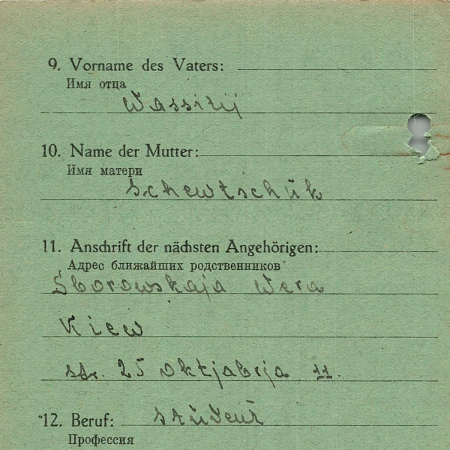 9. Vorname des Vaters:
Имя отца
Wassilij
10. Name der Mutter:
Имя матери
Schewtschuk
11. Anschrift der nächsten Angehörigen:
Адрес ближайших родственников
Sborowskaja Wera
Kiew
str. 25 Oktjabrja 11.
12. Beruf: Student
Профессия